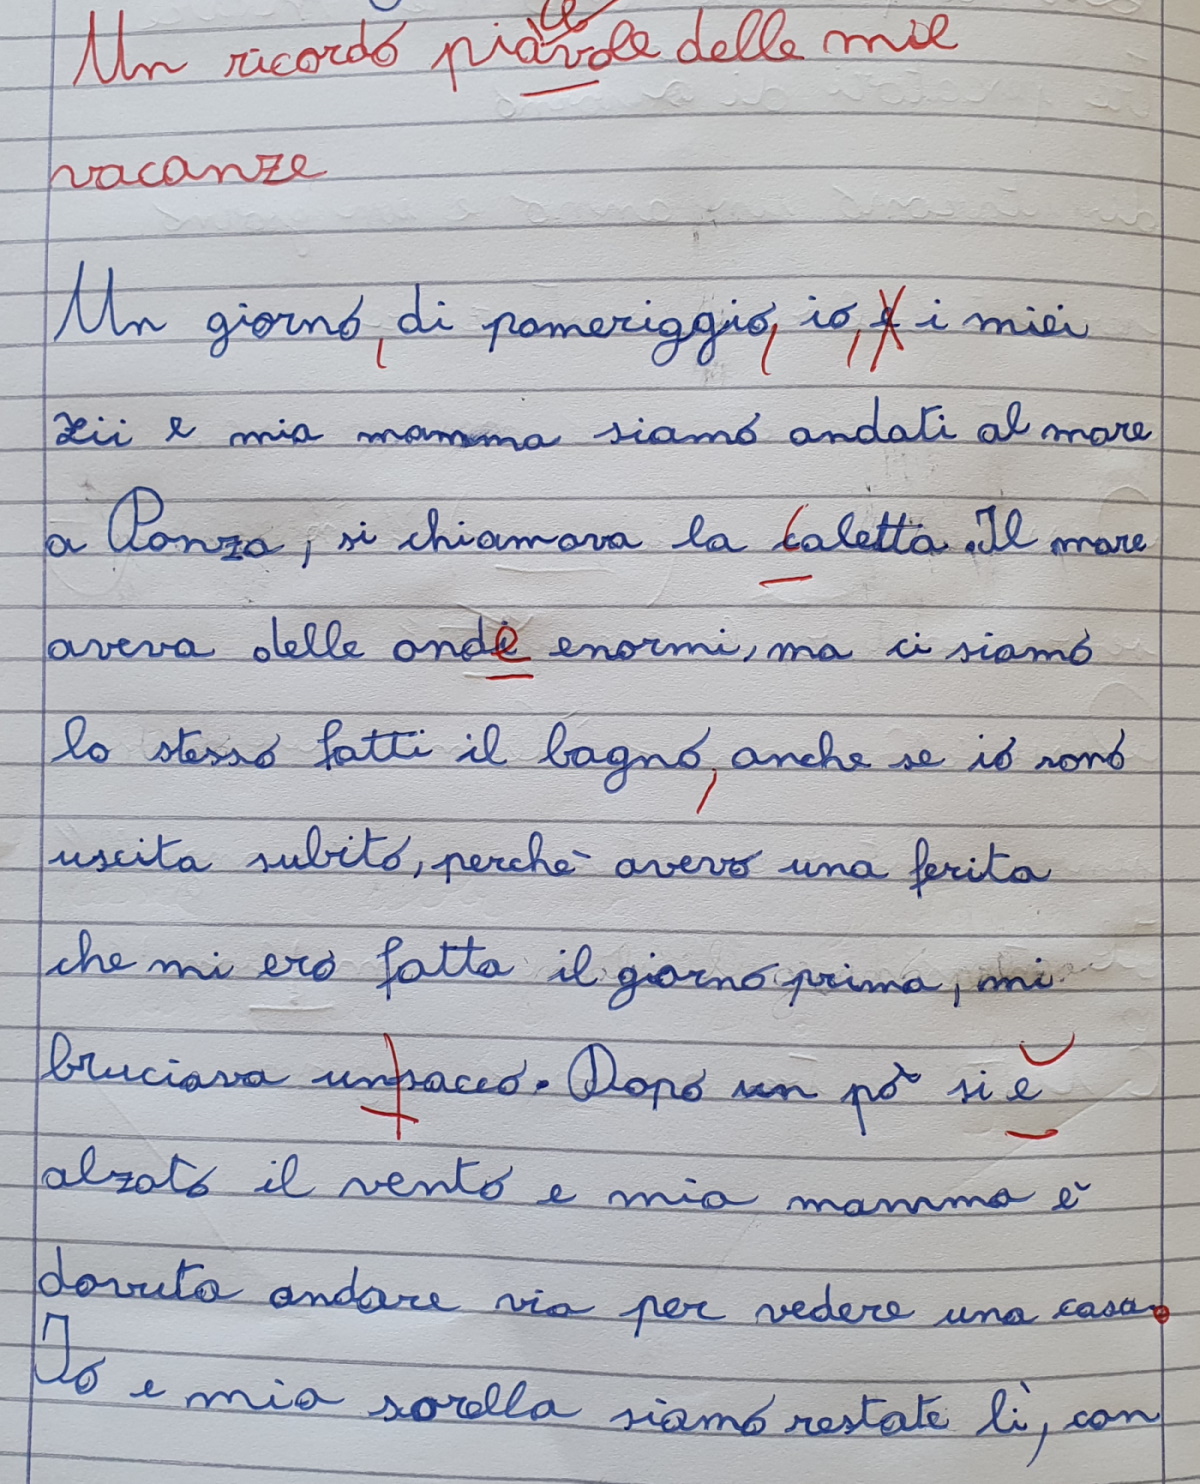 Un ricordo piacevole delle mie
vacanze
Un giorno, di pomeriggio, io, i miei
zii e mia mamma siamo andati al mare
a Ponza, si chiamava la Caletta. Il mare
aveva delle onde enormi, ma ci siamo
lo stesso fatti il bagno, anche se io sono
uscita subito, perchè avevo una ferita
che mi ero fatta il giorno prima, mi
bruciava un sacco. Dopo un pò si è
alzato il vento e mia mamma è
dovuta andare via per vedere una casa.
Io e mia sorella siamo restate lì, con